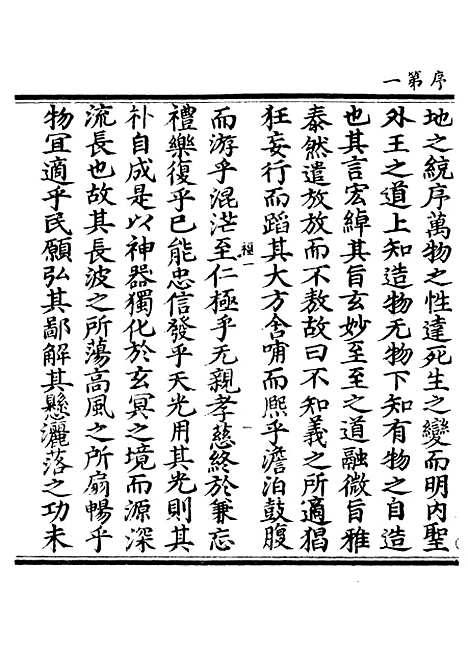 序第一
地之統序萬物之性達死生之變而明內聖
外王之道上知造物无物下知有物之自造
也其言宏綽其旨玄妙至至之道融微旨雅
泰然遣放放而不敖故曰不知義之所適猖
狂妄行而蹈其大方含哺而熈乎澹泊鼓腹
而游乎混茫至仁極乎无親孝慈終於兼忘
禮樂復乎已能忠信發乎天光用其光則其
朴自成是以神器獨化於玄冥之境而源深
流長也故其長波之所蕩高風之所扇暢乎
物冝適乎民願弘其鄙解其懸灑落之功未